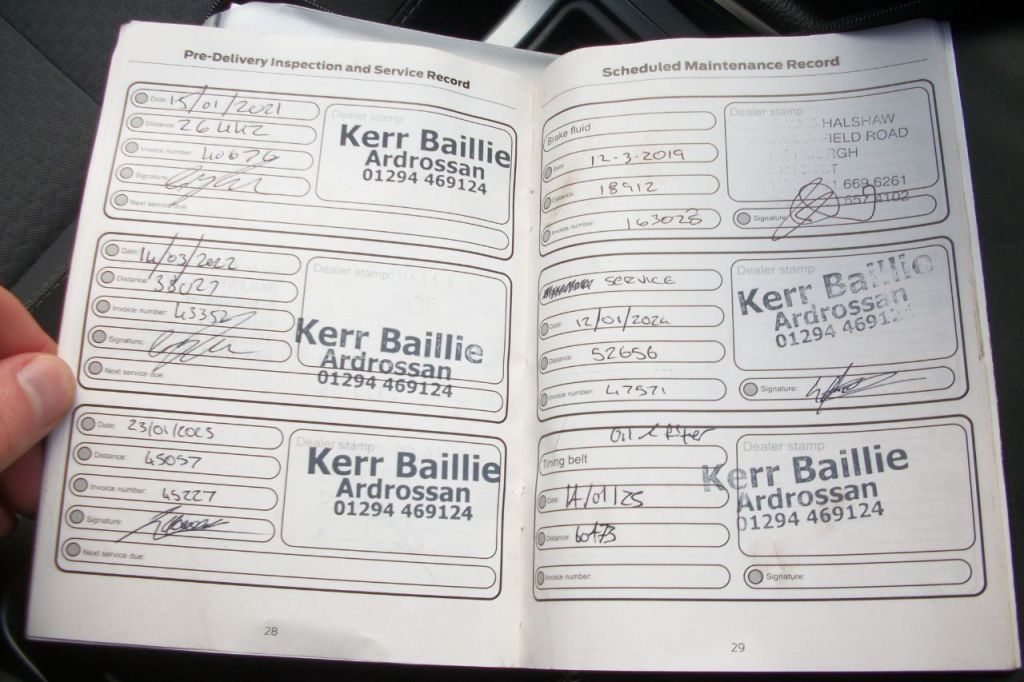 Pre-Delivery Inspection and Service Record
Date: 15/01/2021
Distance: 26442
Invoice number: 40676
Signature:
Next service due:
Dealer stamp
Kerr Baillie
Ardrossan
01294 469124
Date: 14/03/2022
Distance: 38027
Invoice number: 43352
Signature:
Next service due:
Dealer stamp
Kerr Baillie
Ardrossan
01294 469124
Date: 23/01/2023
Distance: 45057
Invoice number: 45227
Signature:
Next service due:
Dealer stamp
Kerr Baillie
Ardrossan
01294 469124
28
Scheduled Maintenance Record
Brake fluid
Date 12-3-2019
Distance: 18912
Invoice number: 163028
Dealer stamp
HALSHAW
FIELD ROAD
669 6261
657 4102
Signature:
SERVICE
Date: 12/01/2024
Distance: 52656
Invoice number: 47571
Dealer stamp
Kerr Baillie
Ardrossan
01294 46912
Signature:
Oil & Filter
Timing belt
Date: 14/01/25
Distance: 60473
Invoice number:
Dealer stamp
Kerr Baillie
Ardrossan
01294 469124
Signature:
29